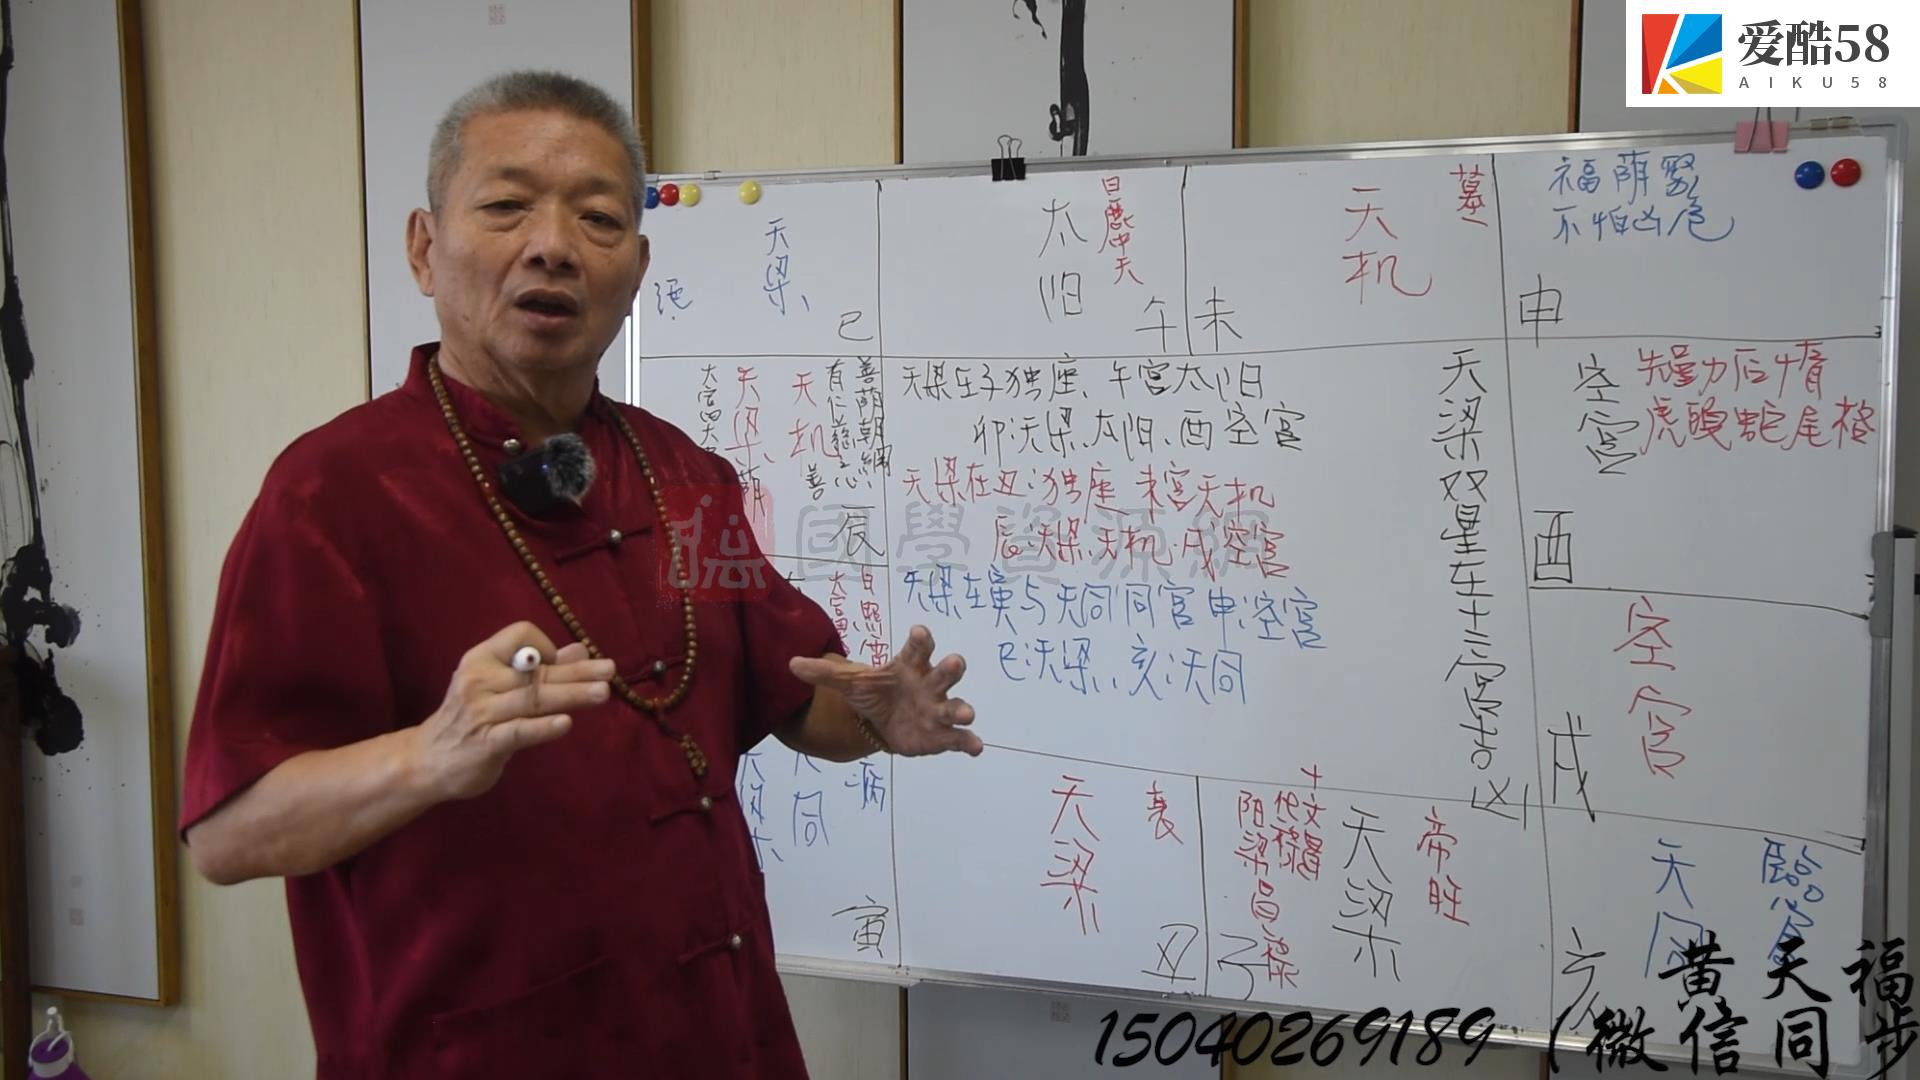 爱酷58
AIKU58
天梁
巳
太阳
日麗中天
午
天机
墓
未
福荫聚
不怕凶危
申
天梁
天机
有仁慈之心
善荫朝綱
善
辰
天梁在子独座、午宫太阳
卯:天梁、太阳、酉空宫
天梁在丑:独座 未宫天机
辰:天梁、天机、戌空宫
天梁在寅与天同同宫 申:空宫
巳:天梁、亥:天同
天梁双星在十二宫吉凶
空宫
先勤力后惰
虎頭蛇尾格
酉
空宫
戌
日照雷
天同
病
寅
天梁
衰
丑
阳梁昌禄
十文昌
化禄
天梁
帝旺
子
天同
臨官
亥
國學資源網
黄天福
15040269189（微信同步